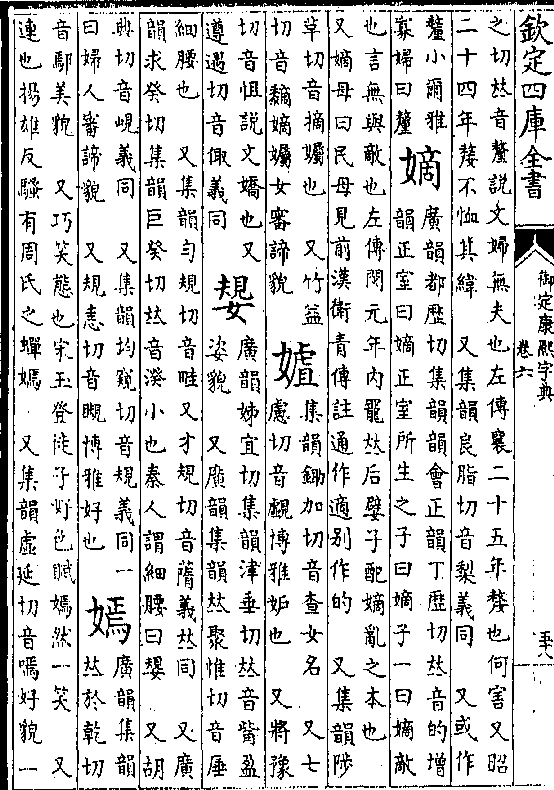 欽定四庫全書
御定康熙字典
卷六
之切𠀤音釐說文婦無夫也左傳襄二十五年嫠也何害又昭
二十四年嫠不恤其緯　又集韻良脂切音犂義同　又或作
釐小爾雅
寡婦曰釐
嫡
廣韻都歷切集韻韻會正韻丁歷切𠀤音的增
韻正室曰嫡正室所生之子曰嫡子一曰嫡敵
也言無與敵也左傳閔元年内寵𠀤后嬖子配嫡亂之本也
又嫡母曰民母見前漢衛青傳註通作適别作的　又集韻陟
革切音摘孎也　又竹益
切音䵹嫡孎女審諦貌
㜘
集韻鋤加切音查女名　又七
慮切音覰博雅妬也　又將豫
切音怚說文嬌也又
遵遇切音㑛義同
嫢
廣韻姊宜切集韻津垂切𠀤音觜盈
姿貌　又廣韻集韻𠀤聚惟切音厜
細腰也　又集韻勻規切音眭又才規切音隋義𠀤同　又廣
韻求癸切集韻巨癸切𠀤音揆小也秦人謂細腰曰嫢　又胡
典切音峴義同　又集韻均窺切音規義同一
曰婦人審諦貌　又規恚切音瞡博雅好也
嫣
廣韻集韻
𠀤於乾切
音鄢美貌　又巧笑態也宋玉登徒子好色賦嫣然一笑　又
連也揚雄反騷有周氏之蟬嫣　又集韻虛延切音嘕好貌一